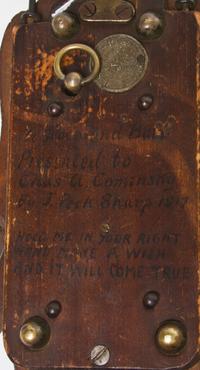 Presented to
Chas A. Cominsky
by J. Peck Sharp 1917
HOLD ME IN YOUR RIGHT
HAND MAKE A WISH
AND IT WILL COME TRUE